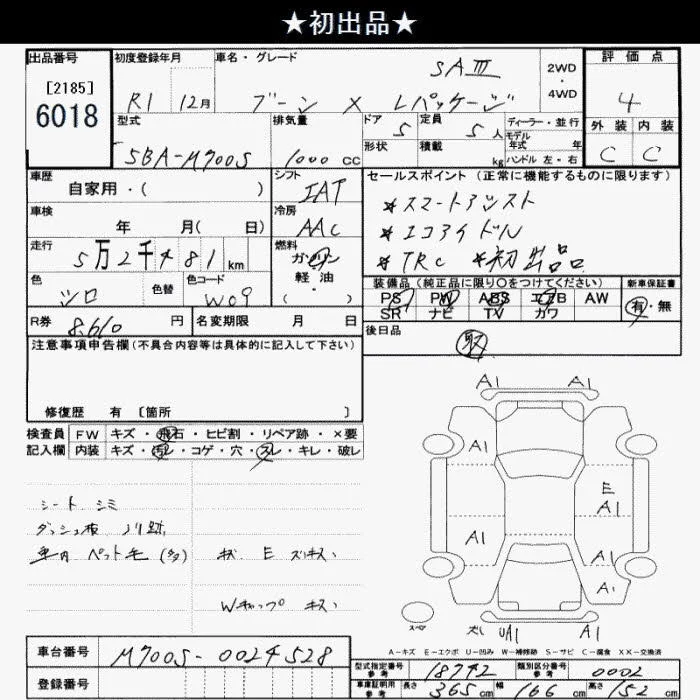 ★初出品★
出品番号 初度登録年月 車名・グレード 評価点
[2185] SAⅢ 2WD・4WD
6018 R1 12月 ブーン X Lパッケージ 4
型式 排気量 ドア 5 定員 5人 ディーラー・並行 外装 内装
5BA-M700S 1000cc 形状 積載 kg モデル年式 年 ハンドル 左・右 C C
車歴 シフト セールスポイント (正常に機能するものに限ります)
自家用・( ) IAT *スマートアシスト
車検 冷房 *エコアイドル
年 月( 日) AAC *TRC *初出品
走行 燃料
5万2千481km ガソリン
色 色替 色コード 軽・油 装備品 (純正品に限り○をつけてください) 新車保証書
シロ W09 ( ・ ) PS PW ABS エアB AW 有・無
SR ナビ TV カワ
R券 8,610円 名変期限 月 日 後日品
注意事項申告欄(不具合内容等は具体的に記入して下さい) 取
修復歴 有 [箇所 ]
検査員 FW キズ・飛石・ヒビ割・リペア跡・×要
記入欄 内装 キズ・汚レ・コゲ・穴・スレ・キレ・破レ
シート シミ
ダッシュ板 ノリ跡
車内 ペット毛 (多) キズ E スリキズ
Wキャップ キズ
A1 A1
A1
E
A1
A1 A1
A1
スペア UA1 A1
A-キズ E-エクボ U-凹み W-補修跡 S-サビ C-腐食 XX-交換済
車台番号 M700S-0024528 型式指定番号 参考 18742 類別区分番号 参考 0002
登録番号 車庫証明用 参考 長さ 365cm 幅 166cm 高さ 152cm